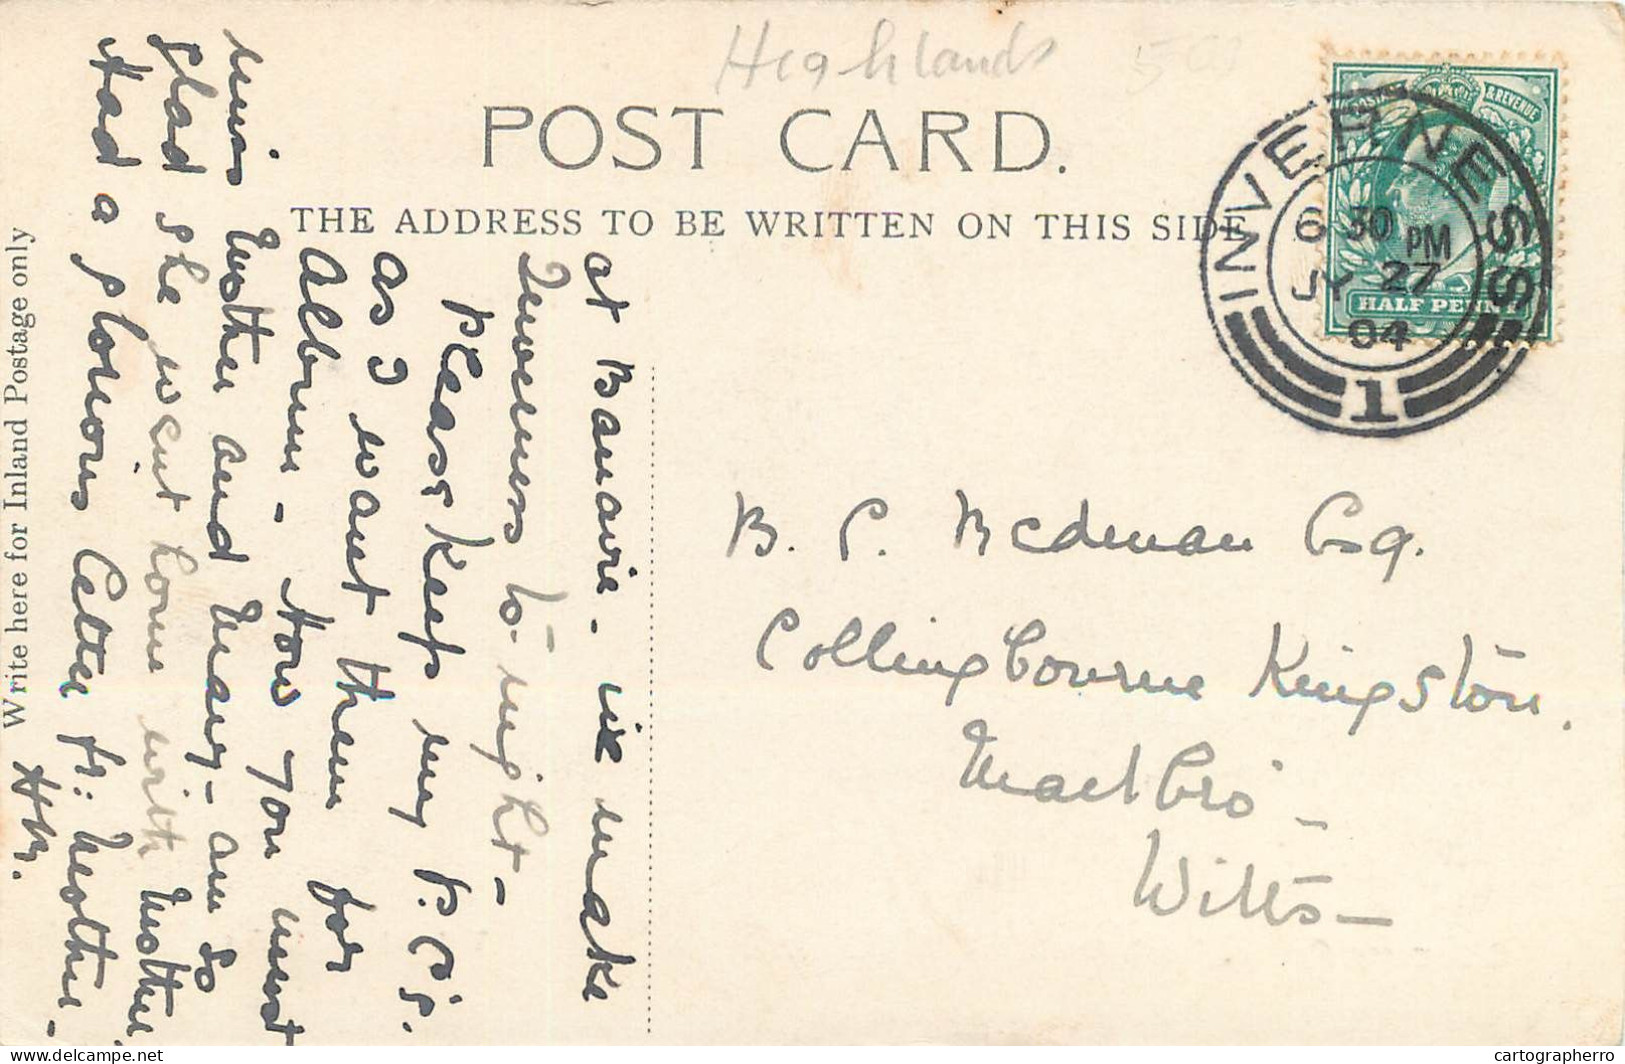 Highlands
POST CARD.
THE ADDRESS TO BE WRITTEN ON THIS SIDE
POSTAGE & REVENUE
HALF PENNY
INVERNESS
6 30 PM
JY 27
04
1
Write here for Inland Postage only
at Banavie. We make
Inverness to-night-
Please keep my P.C's.
as I want them for
Album - How you must
miss Mother and Mary - am so
glad she went home with Mother.
Had a glorious letter fr: Mother -
HB.
B. C. Bedman Esq.
Collingbourne Kingston.
Marlbro' -
Wilts -
cartographerro